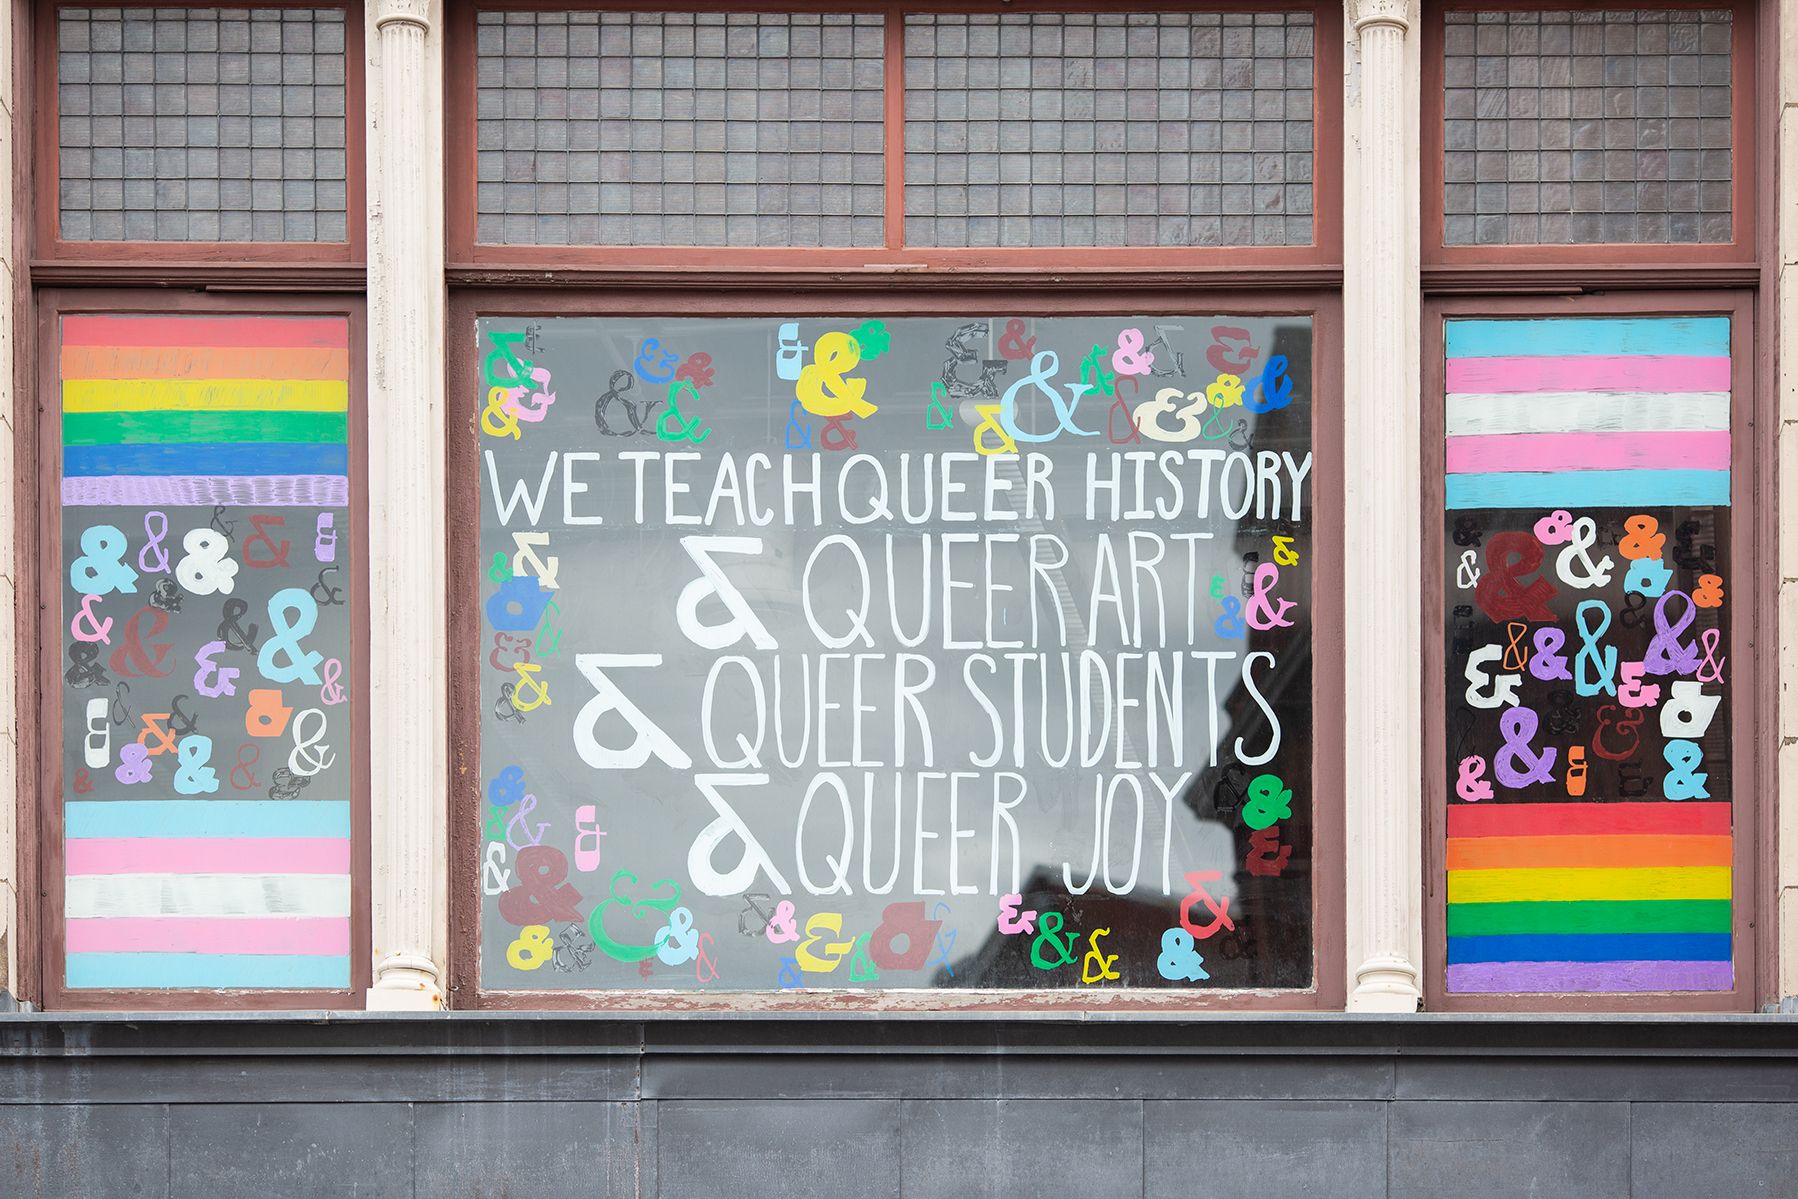 WE TEACH QUEER HISTORY
& QUEER ART
& QUEER STUDENTS
& QUEER JOY